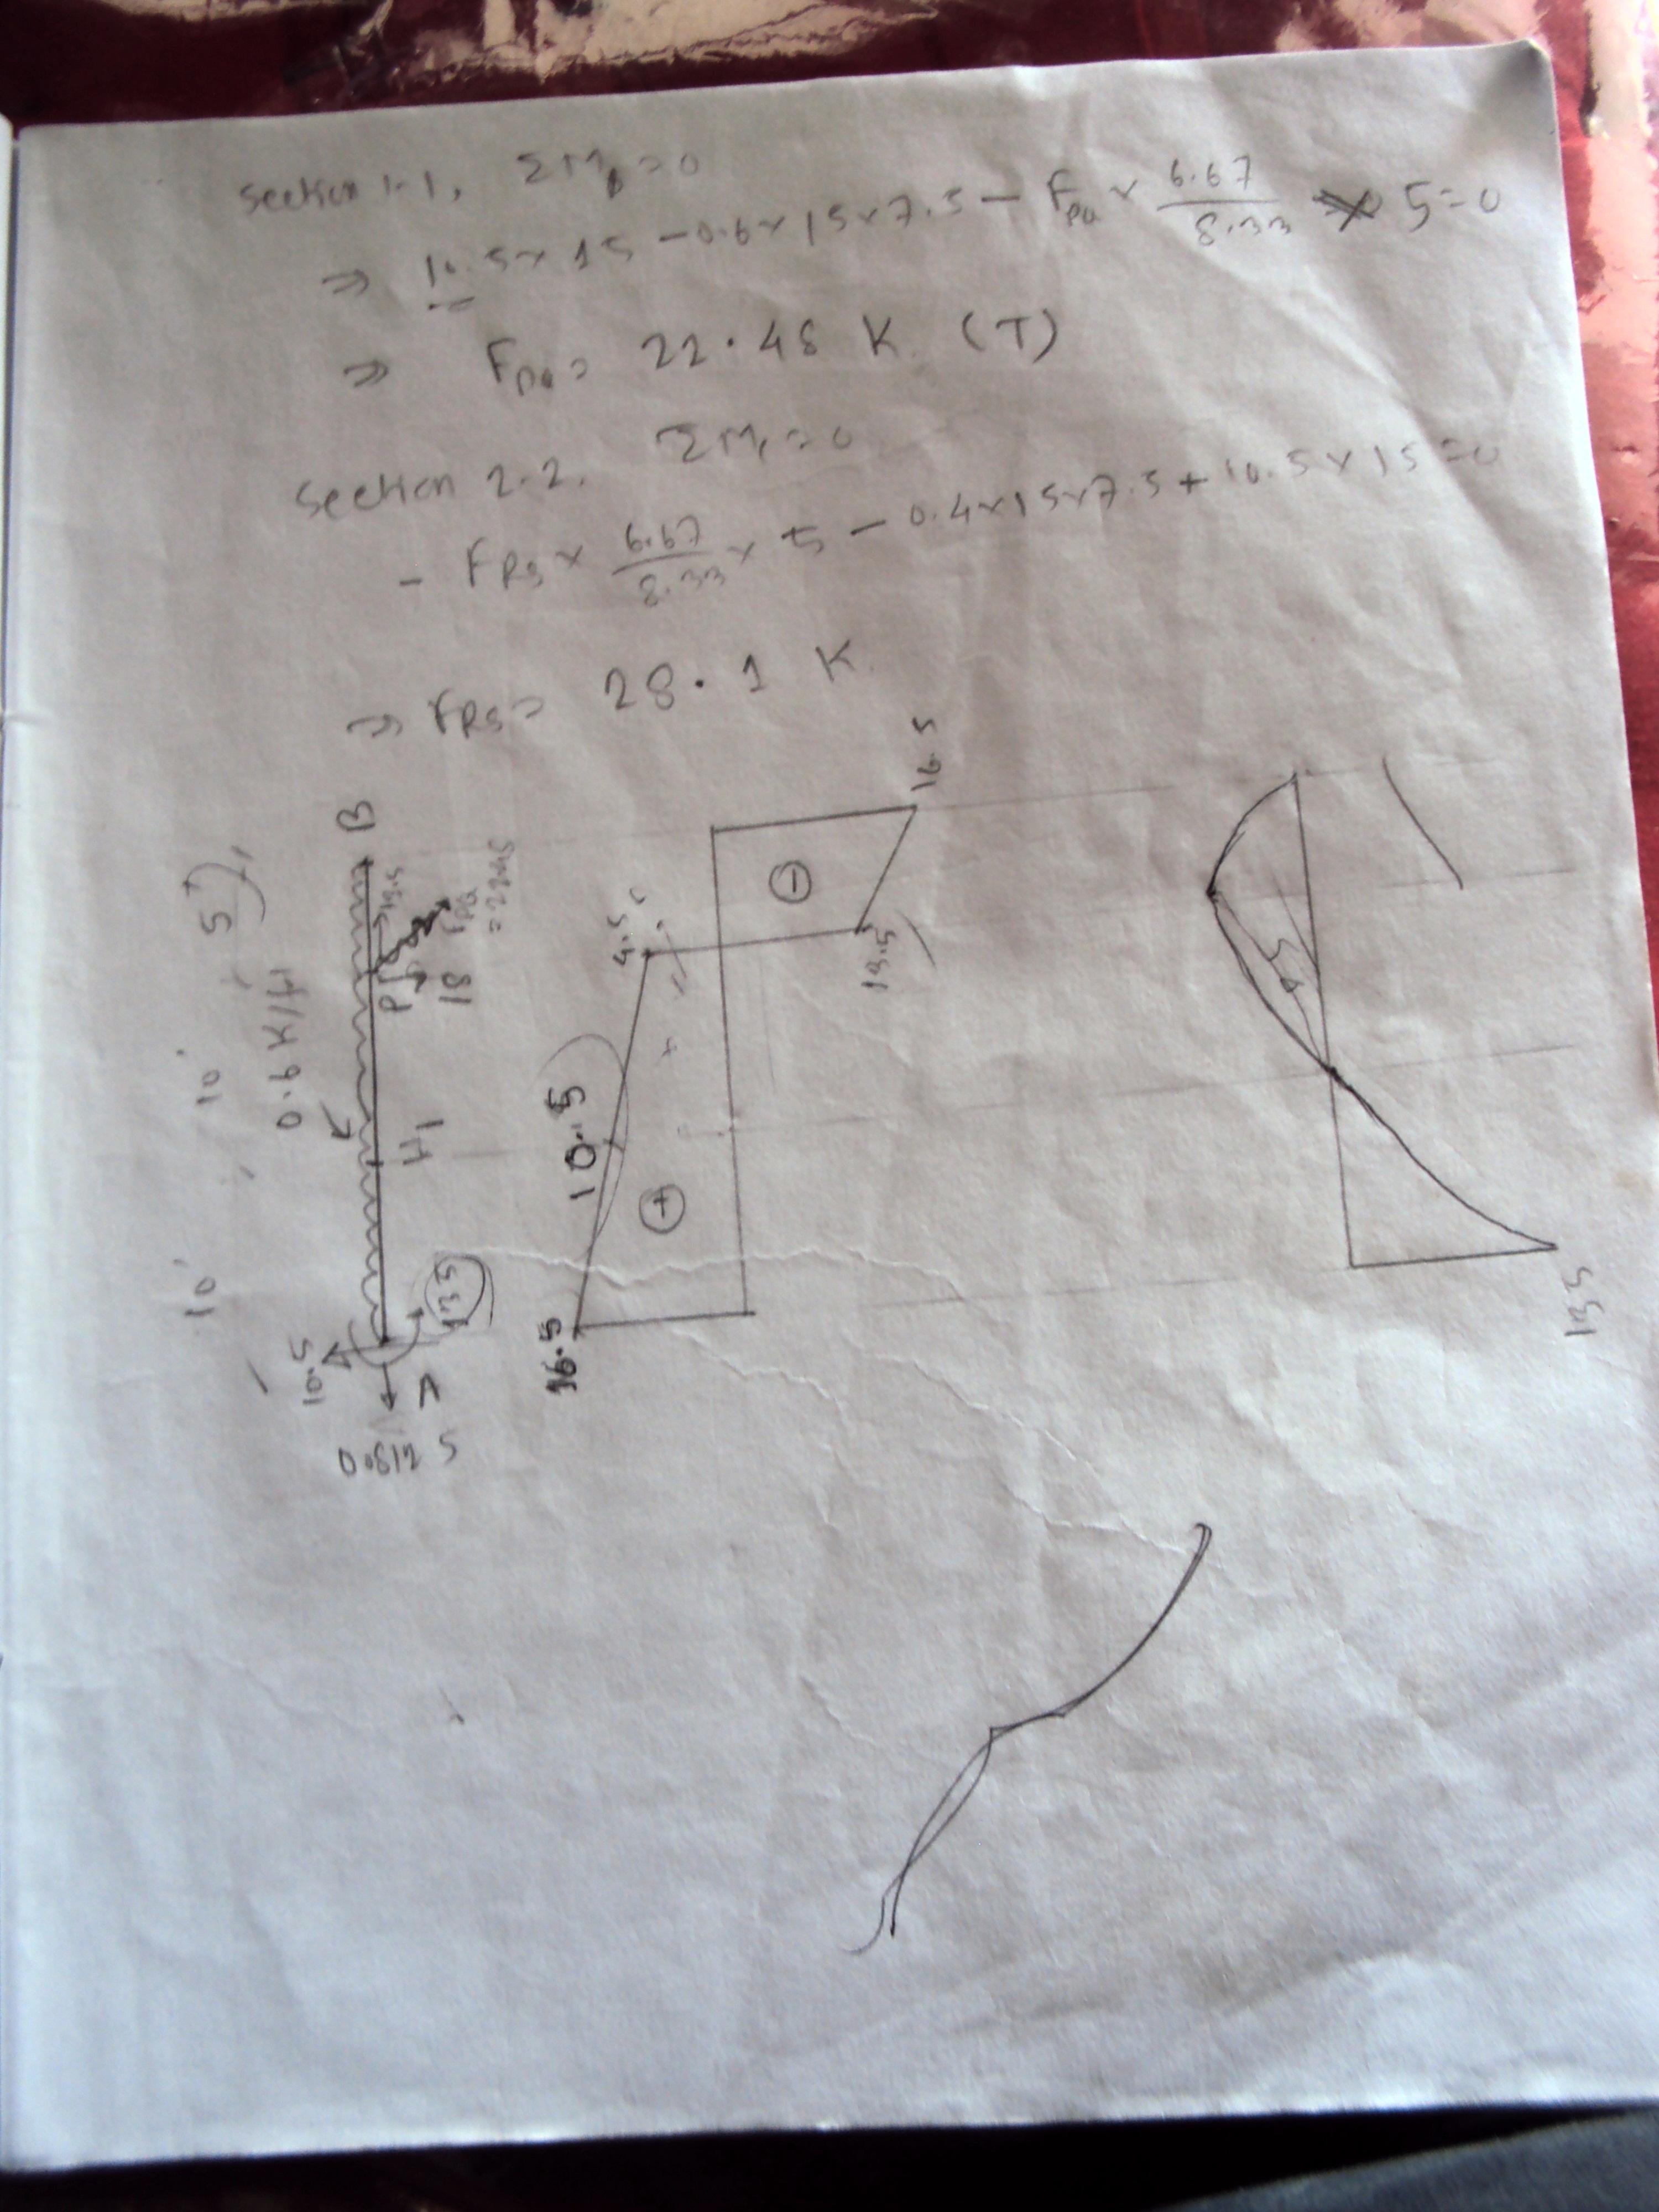 Section 1-1, ΣM =0
⇒ 10.5×15 -0.6×15×7.5 - F_PQ × 6.67/8.33 × 5=0
⇒ F_PQ = 22.48 K (T)
Section 2-2, ΣM =0
- F_RS × 6.67/8.33 × 5 - 0.4×15×7.5 + 10.5×15=0
⇒ F_RS = 28.1 K
10' 10' 5'
0.6 K/ft
10.5
B
H1
P
13.5
18
F_PQ
= 22.48
135
0.8125
16.5
10.5
4.5
+
-
13.5
16.5
135